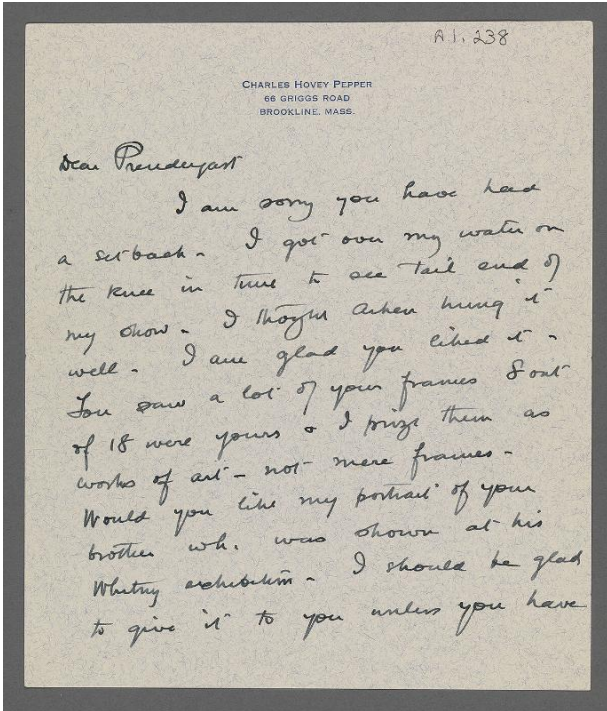 A1.238
CHARLES HOVEY PEPPER
66 GRIGGS ROAD
BROOKLINE, MASS.
Dear Prendergast
I am sorry you have had
a setback - I got over my water on
the knee in time to see tail end of
my show - I thoght Arken hung it
well - I am glad you liked it -
You saw a lot of your frames 8 out
of 18 were yours & I prize them as
works of art - not mere frames -
Would you like my portrait of your
brother wh. was shown at his
Whitny exhibition - I should be glad
to give it to you unless you have